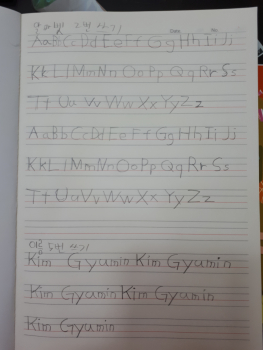 알파벳 2번 쓰기
Aa Bb Cc Dd Ee Ff Gg Hh Ii Jj
Kk Ll Mm Nn Oo Pp Qq Rr Ss
Tt Uu Vv Ww Xx Yy Zz
Aa Bb Cc Dd Ee Ff Gg Hh Ii Jj
Kk Ll Mm Nn Oo Pp Qq Rr Ss
Tt Uu Vv Ww Xx Yy Zz
이름 5번 쓰기
Kim Gyumin Kim Gyumin
Kim Gyumin Kim Gyumin
Kim Gyumin